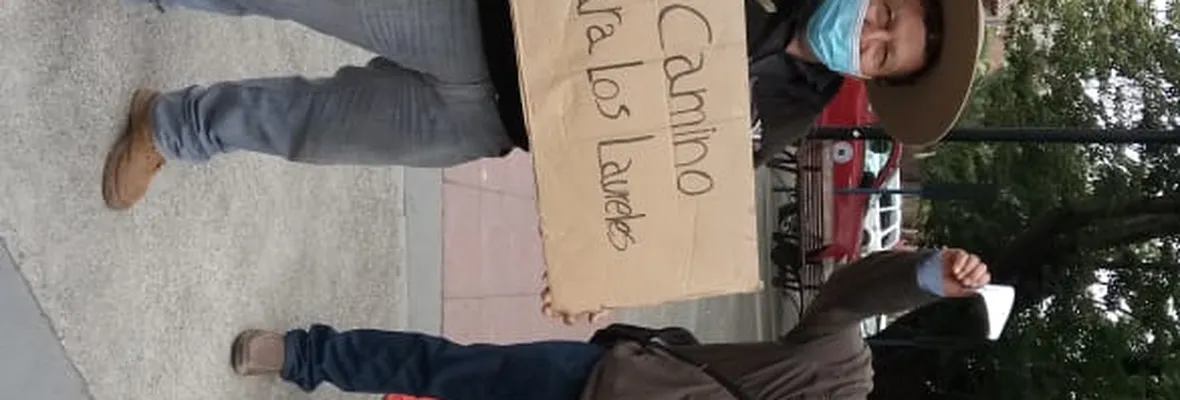 Camino
ara los Laureles